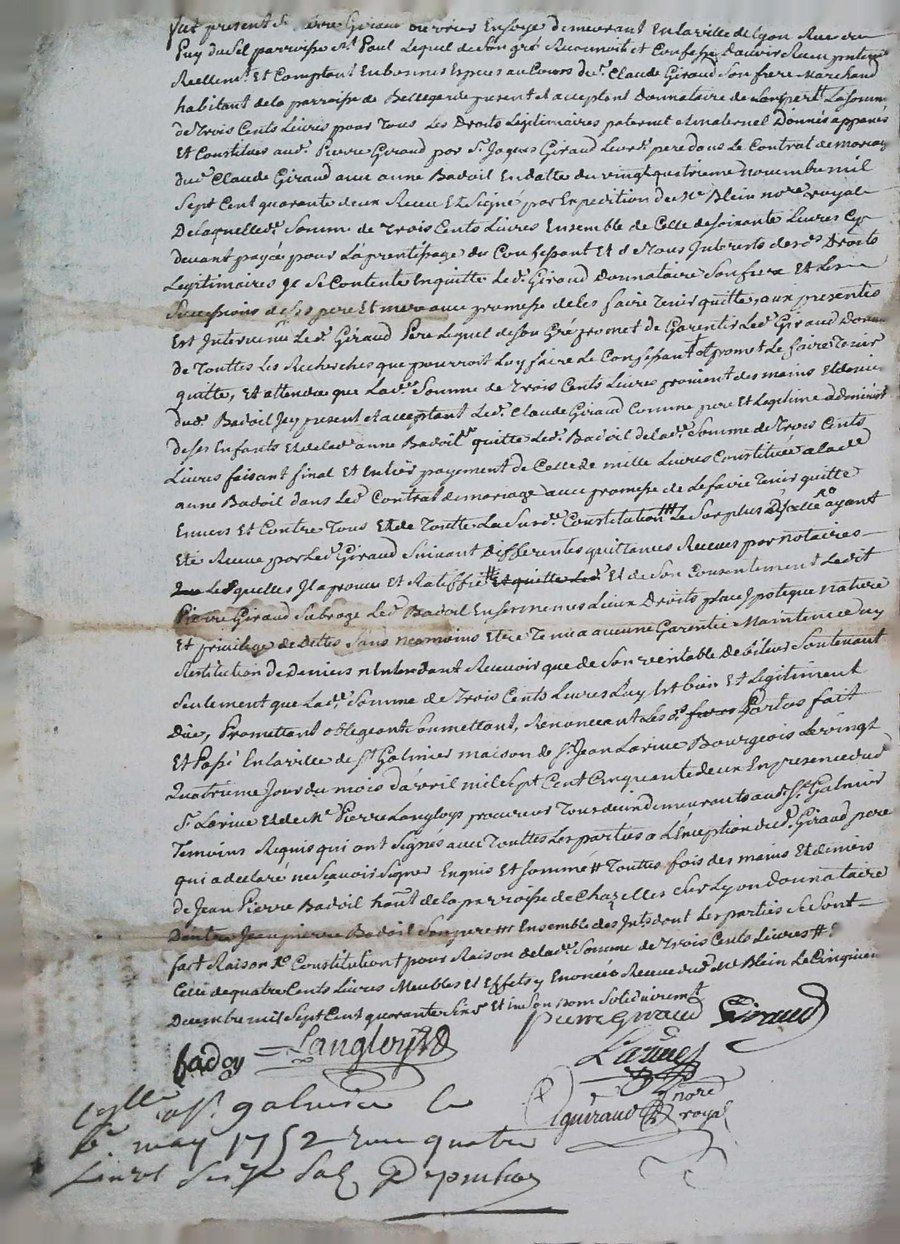 fut present Sr Pierre Giraud ouvrier En soye demeurant En la ville de Lyon Rue du
Puy du Sel parroisse St Paul Lequel de Son gré Reconnoit et Confesse D'auvoir Receu
Reellemt Et Comptant En bonnes Especes au Cours du Sr Claude Giraud Son frere Marchand
habitant de la parroisse de Bellegarde present et acceptant Donnataire de La Somme
de Trois Cents Livres pour Tous Les Droits Legitimaires paternel et maternel Donnés
Et Constitués aud. Pierre Giraud par Sr Jaques Giraud Leur pere dans Le Contrat de mariage
dud. Claude Giraud avec anne Badoil En datte du vingt quatrieme novembre mil
Sept Cent quarante deux Receu Et Signé par Expedition de Me Blein nore royal
De laquelle Somme de Trois Cents Livres Ensemble de Celle de Soixante Livres Cy
devant payée pour L'aprentissage du Confessant Et de Tous Interests de ses Droits
Legitimaires Se Contente Enquitte Led. Giraud Donnataire Son frere Et Les
Successions de Ses pere Et mere avec promesse de les faire Tenir quitte, aux presentes
Est Intervenu Led. Giraud Pere Lequel de Son Gré promet de Garentir Led. Giraud
de Touttes Les Recherches que pourroit Luy faire Le Confessant et promet Le faire Tenir
quitte, Et attendu que Lad. Somme de Trois Cents Livres provient des mains Et deniers
dud. Badoil Icy present et acceptant Led. Claude Giraud Comme pere Et Legitime
de Ses Enfants Et de lad. anne Badoil quitte Led. Badoil de lad. Somme de Trois Cents
Livres faisant final Et Entier payement de Celle de mille Livres Constituée a lad.
anne Badoil dans Led. Contrat de mariage avec promesse de Le faire Tenir quitte
Envers Et Contre Tous Et de Toutte La Susd. Constitution Le Surplus ayant
Eté Receu par Led. Giraud Suivant differentes quittances Receues par notaires
Lesquelles Il aprouve Et Ratiffie Et quitte Led. Et de Son Consentement Ledit
Pierre Giraud Subroge Led. Badoil En Ses memes Lieux Droits place Ipoteque nature
Et privilege de Dettes Sans neamoins Etre Tenu a aucune Garentie Maintenue ny
Restitution de Deniers n'Entendant Recevoir que de Son veritable debiteur Soutenant
Seulement que Lad. Somme de Trois Cents Livres Luy Est bien Et Legitiment
Due, Promettant obligeant Soumettant, Renonceant Lesd. Parties fait
Et Passé En La ville de St Galmier maison de Sr Jean Larive Bourgeois Le vingt
Quatrieme Jour du mois d'avril mil Sept Cent Cinquante deux En presence dud.
Sr Larive Et de Me Pierre Langloys procureur Tous deux demeurants aud. St Galmier
Temoins Requis qui ont Signés avec Touttes Les parties a L'exeption dud. Giraud pere
qui a declaré ne Sçavoir Signer Enquis Et Sommé # Touttes fois des mains Et deniers
de Jean Pierre Badoil habt de la parroisse de Chazelles Sur Lyon Donnataire
D'entre Jean pierre Badoil Son pere Ensemble des Ints dont Les parties Se Sont
fait Raison Constitutiont pour Raison de lad. Somme de Trois Cents Livres
Celle de quatre Cents Livres Meubles Et Effets y Enoncés Receue dud. Me Blein Le Cinquieme
Decembre mil Sept Cent quarante Et En Son nom Solidairemt
Pierre Giraud Giraud
badoy Langloys
Larive
Cglle a St galmier Le
may 1752 Receu quatre
Livres
guiraud nore
royal